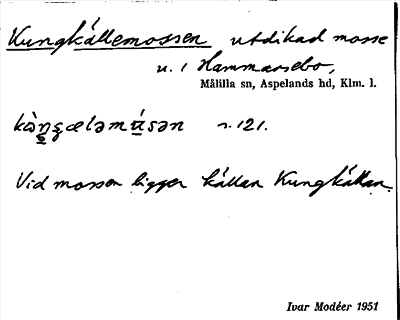 Kungkällemossen utdikad mosse
u. 1 Hammarsebo,
Målilla sn, Aspelands hd, Klm. l.
r. 121.
Vid mossen ligger källan Kungkällan.
Ivar Modéer 1951